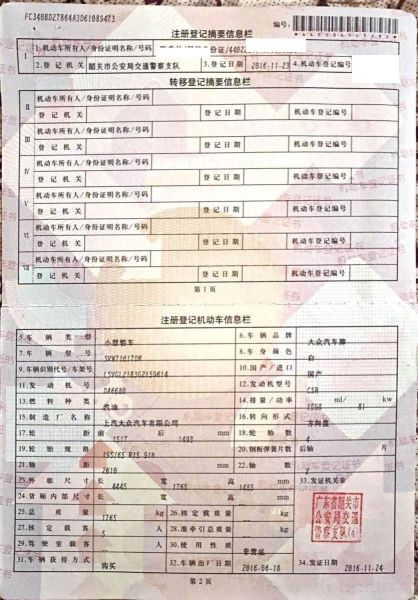 FC340BDZ7B64A3D61089473
编号:
注册登记摘要信息栏
I 1.机动车所有人/身份证明名称/号码
2.登记机关 韶关市公安局交通警察支队 3.登记日期 2016-11-23 4.机动车登记编号
转移登记摘要信息栏
II 机动车所有人/身份证明名称/号码
登记机关 登记日期 机动车登记编号
III 机动车所有人/身份证明名称/号码
登记机关 登记日期 机动车登记编号
IV 机动车所有人/身份证明名称/号码
登记机关 登记日期 机动车登记编号
V 机动车所有人/身份证明名称/号码
登记机关 登记日期 机动车登记编号
VI 机动车所有人/身份证明名称/号码
登记机关 登记日期 机动车登记编号
VII 机动车所有人/身份证明名称/号码
登记机关 登记日期 机动车登记编号
第1页
注册登记机动车信息栏
5.车辆类型 小型轿车 6.车辆品牌 大众汽车牌
7.车辆型号 8.车身颜色 白
9.车辆识别代号/车架号 10.国产/进口 国产
11.发动机号 12.发动机型号 CSR
13.燃料种类 汽油 14.排量/功率 1598 ml/ 81 kw
15.制造厂名称 上汽大众汽车有限公司 16.转向形式 方向盘
17.轮距 前 1517 后 1493 mm 18.轮胎数 4
19.轮胎规格 195/65 R15 91H 20.钢板弹簧片数 后轴 片
21.轴距 mm 22.轴数
23.外廓尺寸 长 4445 宽 1765 高 1485 mm 33.发证机关章
24.货厢内部尺寸 长 宽 高 mm
25.总质量 1765 kg 26.核定载质量 kg
27.核定载客 5 人 28.准牵引总质量 kg
29.驾驶室载客 人 30.使用性质 非营运
31.车辆获得方式 购买 32.车辆出厂日期 2016-06-18 34.发证日期 2016-11-24
广东省韶关市
公安局交通
警察支队
第2页